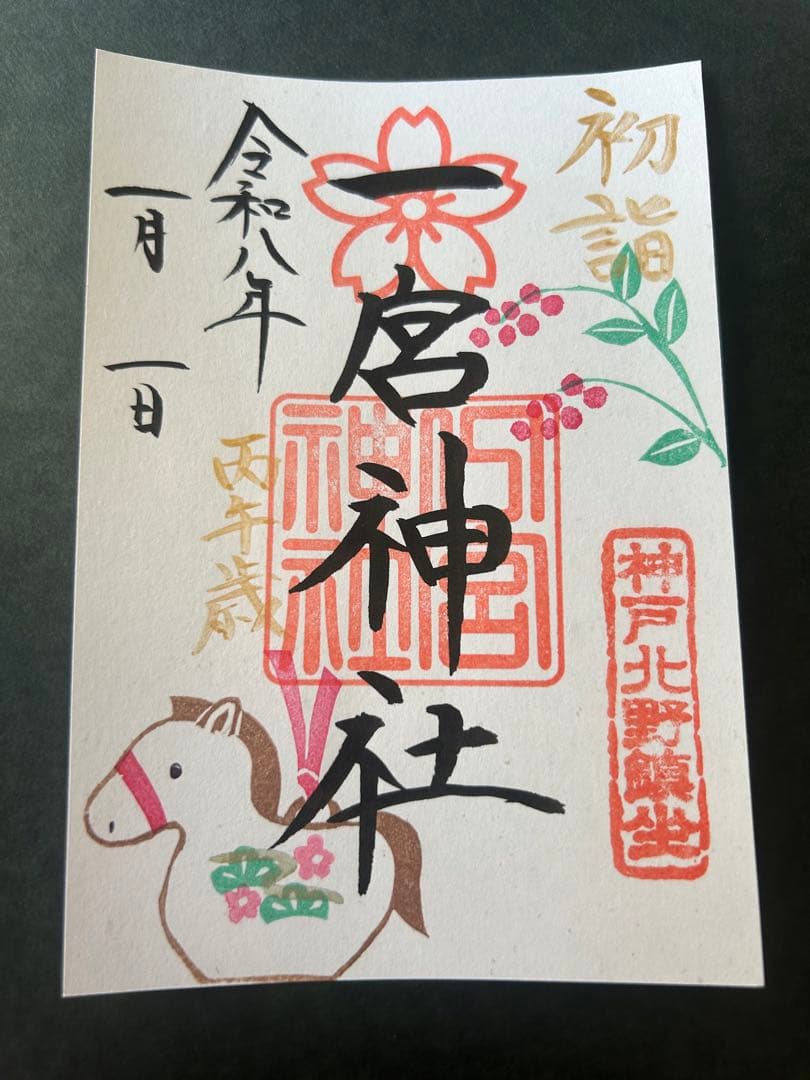 初詣
神戸北野鎮坐
一宮神社
一宮
神社
令和八年
丙午歳
一月一日